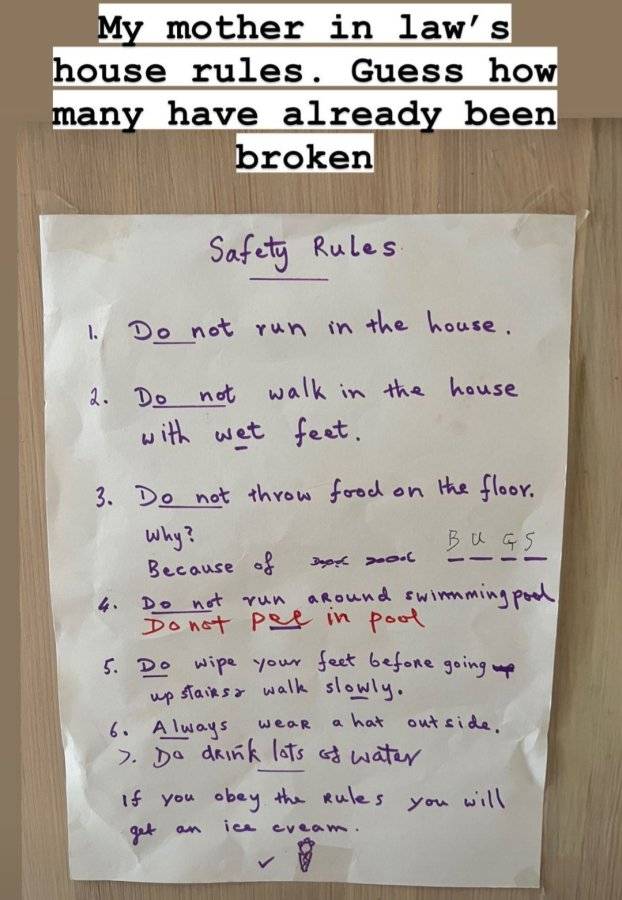 My mother in law's
house rules. Guess how
many have already been
broken
Safety Rules
1. Do not run in the house.
2. Do not walk in the house
with wet feet.
3. Do not throw food on the floor.
Why?
Because of BUGS
4. Do not run around swimming pool
Do not pee in pool
5. Do wipe your feet before going
up stairs & walk slowly.
6. Always wear a hat outside.
7. Do drink lots of water
If you obey the Rules you will
get an ice cream.